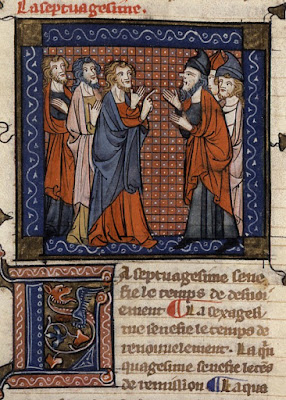 La septuagesime.
La septuagesime sene
fie le temps de desuoi
ement ¶ La sexagesi
me senefie le temps de
renouuelement. La qui
quagesime senefie le tẽs
de remission ¶ La qua